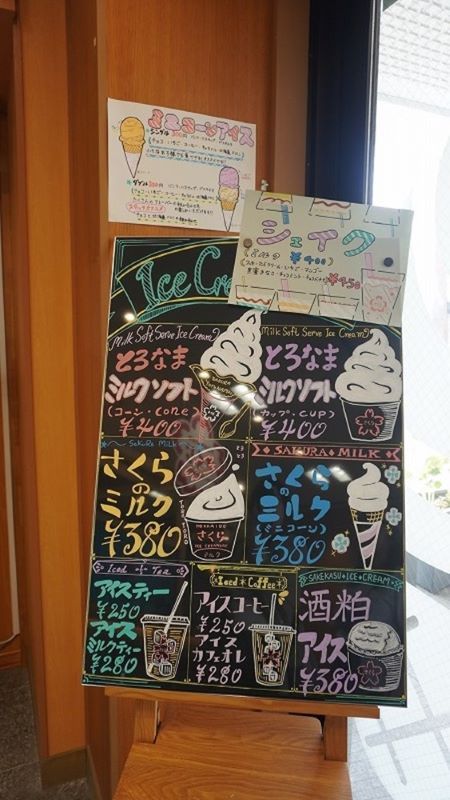 ミニコーンアイス
シングル 300円
ダブル
シェイク
¥400
¥450
Ice Cre
Milk Soft Serve Ice Cream
とろなま
ミルクソフト
(コーン・cone)
¥400
Milk Soft Serve Ice Cream
とろなま
ミルクソフト
(カップ・CUP)
¥400
Sakura Milk
さくら
の
ミルク
¥380
HOKKAIDO
さくら
ICE CREAMERY
ミルク
SAKURA MILK
さくら
の
ミルク
(ミニコーン)
¥380
Iced Tea
アイスティー
¥250
アイス
ミルクティー
¥280
Iced Coffee
アイスコーヒー
¥250
アイス
カフェオレ
¥280
SAKEKASU ICE CREAM
酒粕
アイス
¥380